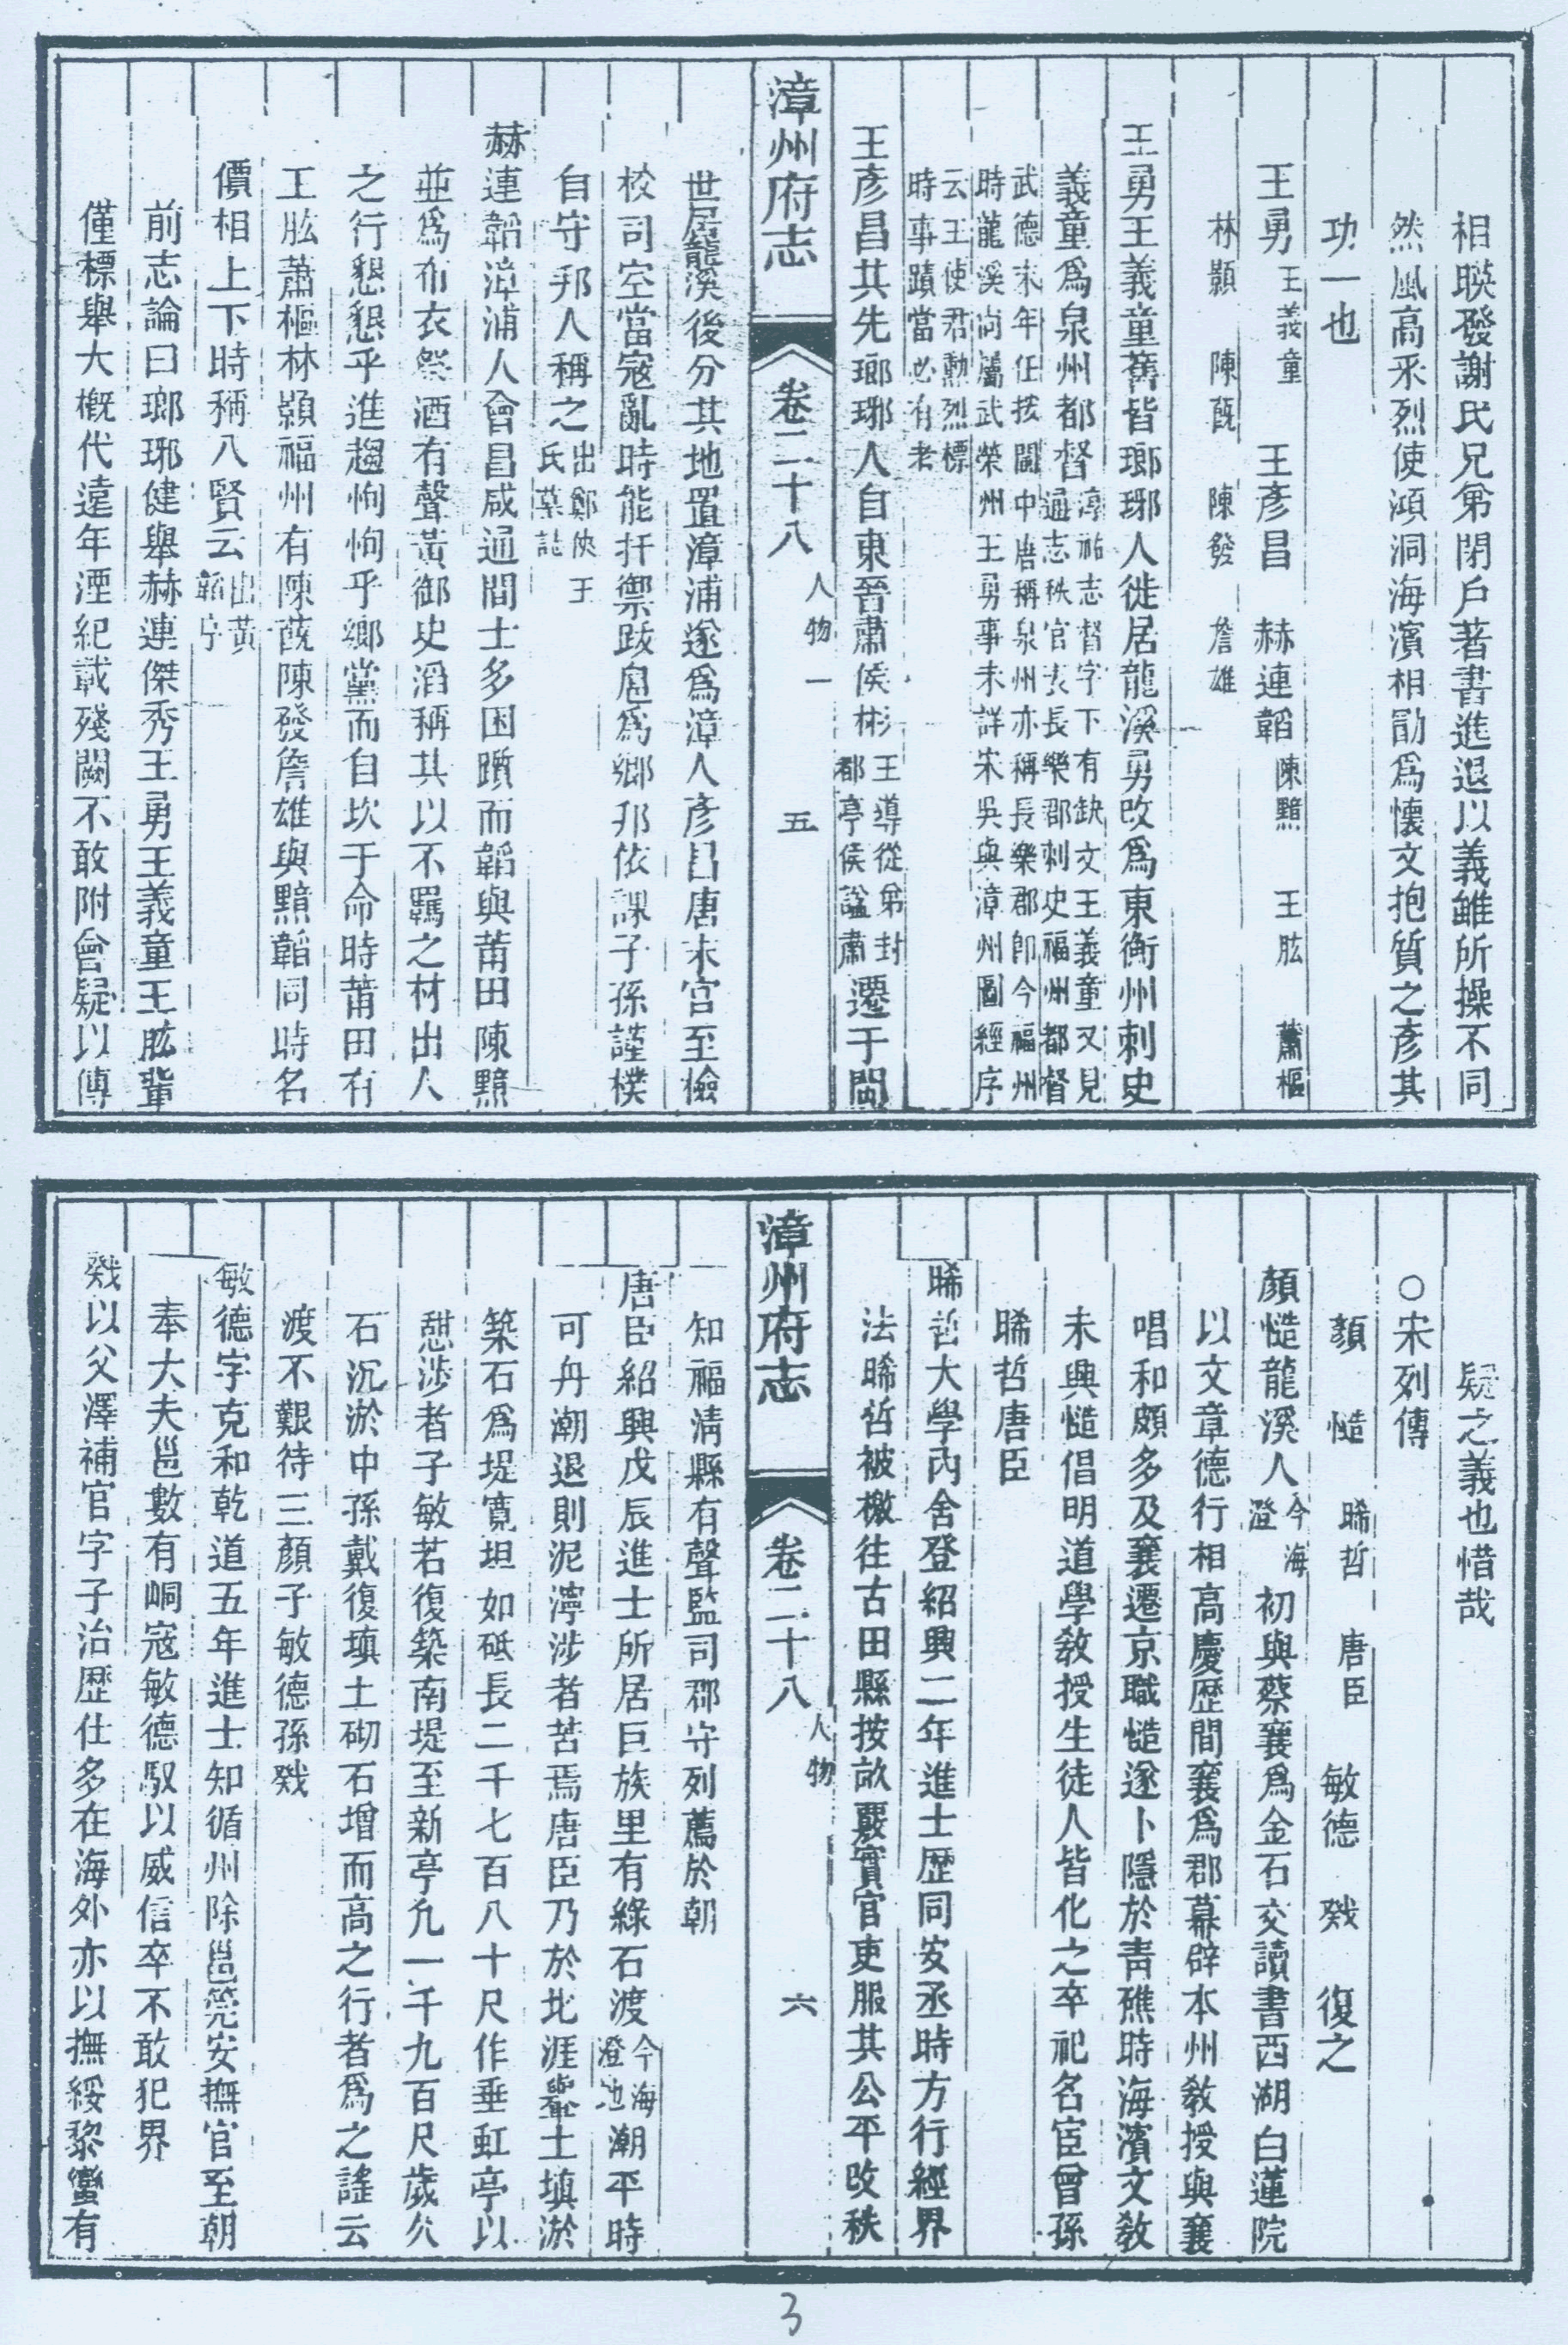 相暎發謝民兄弟閉戶著書進退以義雖所操不同
然風高釆烈使澒洞海濱相勖爲懷文抱質之彥其
功一也
王勇 王義童 王彥昌 赫連韜 陳黯 王肱 蕭樞
林顥 陳蔇 陳發 詹雄
王勇王義童舊皆瑯琊人徙居龍溪勇改爲東衡州刺史
義童爲泉州都督
淳祐志督字下有缺文王義童又見
通志秩官表長樂郡刺史福州都督
武德末年任按閩中唐稱泉州亦稱長樂郡卽今福州
時龍溪尙屬武榮州王勇事未詳宋吳與漳州圖經序
云王使君勲烈標
時事蹟當必有老
王彥昌其先瑯琊人自東晉肅侯彬
王導從弟封
都亭侯諡肅
遷于閩
漳州府志
卷二十八
人物一
五
世居龍溪後分其地置漳浦遂爲漳人彥昌唐末官至檢
校司空當寇亂時能扞禦跋扈爲鄉邦依課子孫謹樸
自守邦人稱之
出鄭俠王
氏墓誌
赫連韜漳浦人會昌咸通間士多困躓而韜與莆田陳黯
並爲布衣祭酒有聲黃御史滔稱其以不羈之材出人
之行懇懇乎進趨恂恂乎鄉黨而自坎于命時莆田有
王肱蕭樞林顥福州有陳蔇陳發詹雄與黯韜同時名
價相上下時稱八賢云
出黃
韜序
前志論曰瑯琊健舉赫連傑秀王勇王義童王肱輩
僅標舉大槪代遠年湮紀載殘闕不敢附會疑以傳
疑之義也惜哉
○宋列傳
顏慥 晞哲 唐臣 敏德 戣 復之
顏慥龍溪人
今海
澄
初與蔡襄爲金石交讀書西湖白蓮院
以文章德行相高慶歷間襄爲郡幕辟本州敎授與襄
唱和頗多及襄遷京職慥遂卜隱於靑礁時海濱文敎
未興慥倡明道學敎授生徒人皆化之卒祀名宦曾孫
晞哲唐臣
晞哲大學內舍登紹興二年進士歷同安丞時方行經界
法晞哲被檄往古田縣按畝覈實官吏服其公平改秩
漳州府志
卷二十八
人物
六
知福淸縣有聲監司郡守列薦於朝
唐臣紹興戊辰進士所居巨族里有綠石渡
今海
澄地
潮平時
可舟潮退則泥濘涉者苦焉唐臣乃於北涯輂土填淤
築石爲堤寬坦如砥長二千七百八十尺作垂虹亭以
憇涉者子敏若復築南堤至新亭凢一千九百尺歲久
石沉淤中孫戴復塡土砌石增而高之行者爲之謠云
渡不艱待三顏子敏德孫戣
敏德字克和乾道五年進士知循州除邕筦安撫官至朝
奉大夫邕數有峒寇敏德馭以威信卒不敢犯界
戣以父澤補官字子治歷仕多在海外亦以撫綏黎蠻有
3